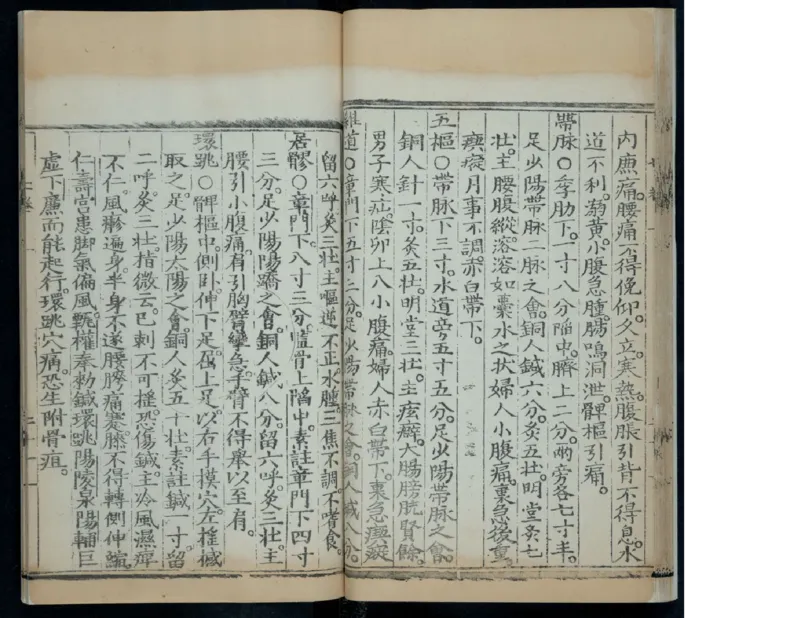 內廉痛。腰痛不得俛仰久立。寒熱。腹脹引背不得息。水
道不利。溺黃。小腹急腫。腸鳴洞泄。髀樞引痛。
帶脉○季肋下。一寸八分陷中。臍上二分。兩旁各七寸半。
足少陽帶脉二脉之會。銅人鍼六分。灸五壯。明堂灸七
壯。主腰腹縱。溶溶如囊水之狀婦人小腹痛。裏急後重。
瘛瘲月事不調。赤白帶下。
五樞○帶脉下三寸。水道旁五寸五分。足少陽帶脉之會。
銅人針一寸。灸五壯。明堂三壯。主痃癖。大腸膀胱腎餘。
男子寒疝。陰卵上入小腹痛。婦人赤白帶下。裏急瘛瘲
維道○章門下五寸三分。足少陽帶脉之會。銅人鍼八分。
留六呼灸三壯。主嘔逆不止水腫。三焦不調。不嗜食。
居髎○章門下八寸三分。監骨上陷中。素註章門下四寸
三分。足少陽陽蹻之會。銅人鍼八分。留六呼。灸三壯。主
腰引小腹痛。肩引胸臂攣急。手臂不得舉以至肩。
環跳○髀樞中。側臥。伸下足。屈上足。以右手摸穴。左搖撼
取之。足少陽太陽之會。銅人灸五十壯。素註鍼一寸。留
二呼。灸三壯。指微云。已刺不可搖。恐傷鍼。主冷風濕痺
不仁。風疹遍身。半身不遂。腰胯痛蹇膝不得轉側伸縮。
仁壽宮患脚氣偏風。甄權奉勅鍼環跳陽陵泉陽輔巨
虛下廉而能起行。環跳穴痛。恐生附骨疽。